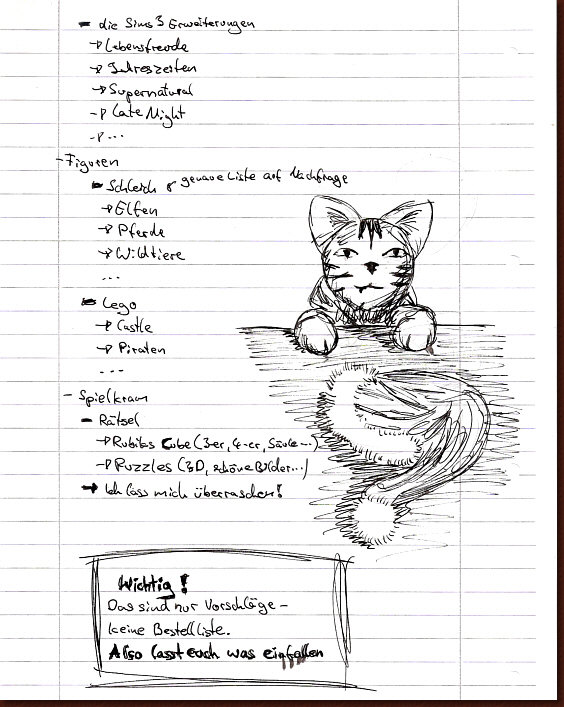 - die Sims 3 Erweiterungen
→ Lebensfreude
→ Jahreszeiten
→ Supernatural
→ Late Night
→ ...
- Figuren
- Schleich & genaue Liste auf Nachfrage
→ Elfen
→ Pferde
→ Wildtiere
...
- Lego
→ Castle
→ Piraten
...
- Spielkram
- Rätsel
→ Rubiks Cube (3-er, 4-er, Säule...)
→ Puzzles (3D, schöne Bilder...)
→ Ich lass mich überraschen!
Wichtig!
Das sind nur Vorschläge -
keine Bestellliste.
Also lasst euch was einfallen